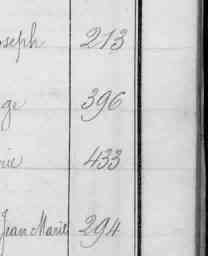 oseph 213
ge 396
rie 433
Jean Marie 294